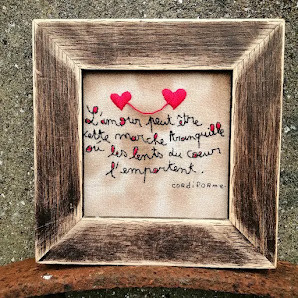 L'amour peut être
cette marche tranquille
où les lents du coeur
l'emportent.
cordiforme